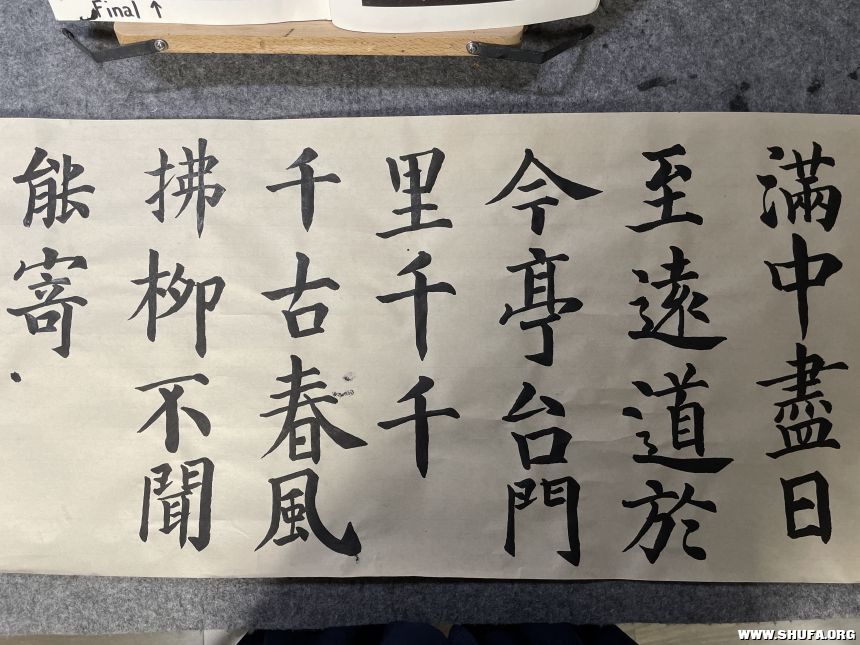 Final ↑
滿中盡日
至遠道於
今亭台門
里千千
千古春風
拂柳不聞
能寄.
WWW.SHUFA.ORG